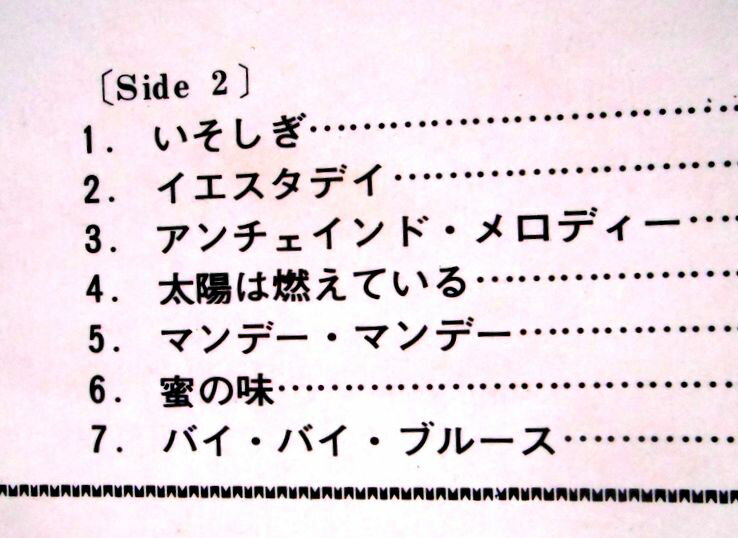 〔Side 2〕
1. いそしぎ……………………………
2. イエスタデイ……………………………
3. アンチェインド・メロディー……
4. 太陽は燃えている……………………
5. マンデー・マンデー…………………
6. 蜜の味……………………………………
7. バイ・バイ・ブルース………………